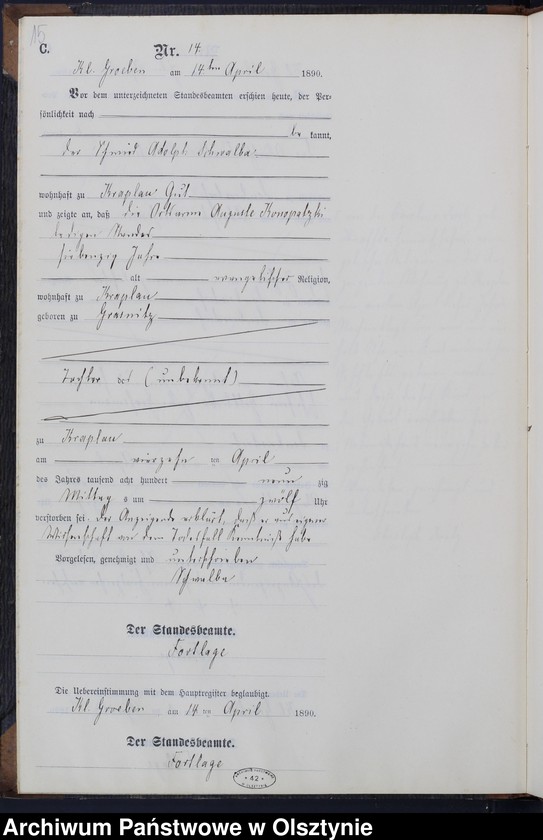 15
C.
Nr. 14
Kl. Groeben am 14ten April 1890.
Vor dem unterzeichneten Standesbeamten erschien heute, der Per-
sönlichkeit nach
be kannt,
der Schmied Adolph Schwalbe
wohnhaft zu Kraplau Gut
und zeigte an, daß die Ortsarme Auguste Konopatzki
ledigen Standes
siebenzig Jahre
alt evangelischer Religion,
wohnhaft zu Kraplau
geboren zu
Tochter des (unbekannt)
zu Kraplau
am vierzehn ten April
des Jahres tausend acht hundert neun zig
Mittag s um zwölf Uhr
verstorben sei. Der Anzeigende erklärte, daß er aus eigener
Wissenschaft von dem Todesfall Kenntniß habe
Vorgelesen, genehmigt und unterschrieben
Schwalbe
Der Standesbeamte.
Fortlage
Die Uebereinstimmung mit dem Hauptregister beglaubigt.
Kl. Groeben am 14 ten April 1890.
Der Standesbeamte.
Fortlage
42
Archiwum Państwowe w Olsztynie